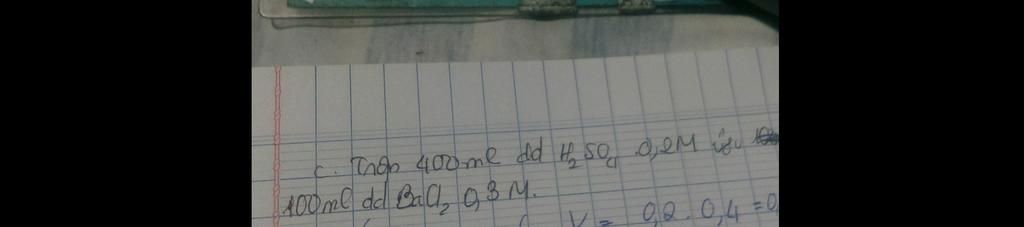 c. Trộn 400ml dd H₂SO₄ 0,2M với
100ml dd BaCl₂ 0,3M.
V = 0,2 . 0,4 = 0,